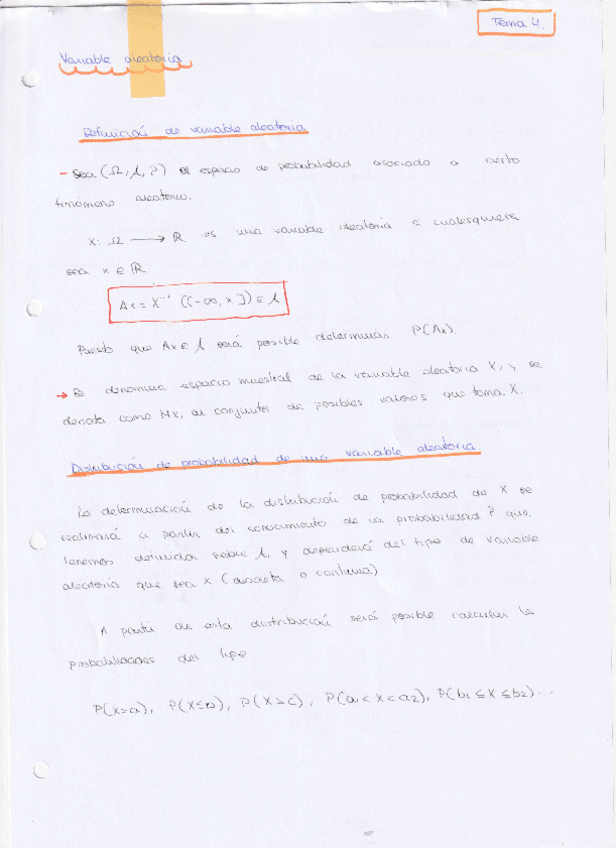 Tema 4.
Variable aleatoria
Definición de variable aleatoria
- Sea (Ω, A, P) el espacio de probabilidad asociado a cierto
fenómeno aleatorio.
X: Ω → ℝ es una variable aleatoria si cualesquiera
sea x ∈ ℝ
Ax = X⁻¹ ((-∞, x]) ∈ A
Puesto que Ax ∈ A será posible determinar P(Ax)
→ Se denomina espacio muestral de la variable aleatoria X, y se
denota como Mx, al conjunto de posibles valores que toma X.
Distribución de probabilidad de una variable aleatoria.
La determinación de la distribución de probabilidad de X se
realizará a partir del conocimiento de la probabilidad P que
tenemos definida sobre A, y dependerá del tipo de variable
aleatoria que sea X (discreta o continua).
A partir de esta distribución será posible calcular las
probabilidades del tipo
P(X=a), P(X≤b), P(X>c), P(a₁<X<a₂), P(b₁≤X≤b₂)...